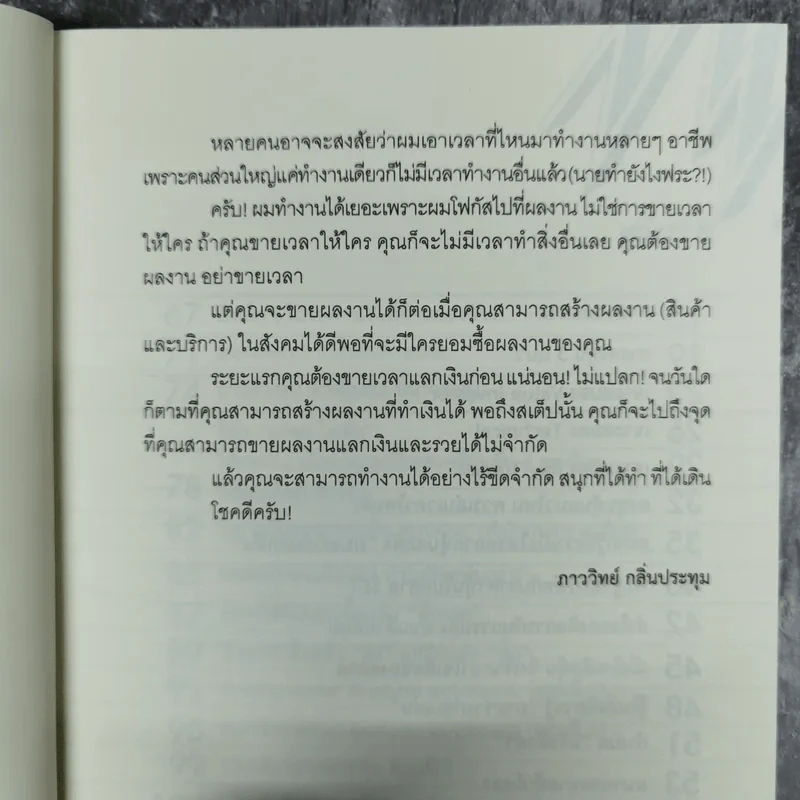 หลายคนอาจจะสงสัยว่าผมเอาเวลาที่ไหนมาทำงานหลายๆ อาชีพ
เพราะคนส่วนใหญ่แค่ทำงานเดียวก็ไม่มีเวลาทำงานอื่นแล้ว(นายทำยังไงฟระ?!)
ครับ! ผมทำงานได้เยอะเพราะผมโฟกัสไปที่ผลงาน ไม่ใช่การขายเวลา
ให้ใคร ถ้าคุณขายเวลาให้ใคร คุณก็จะไม่มีเวลาทำสิ่งอื่นเลย คุณต้องขาย
ผลงาน อย่าขายเวลา
แต่คุณจะขายผลงานได้ก็ต่อเมื่อคุณสามารถสร้างผลงาน (สินค้า
และบริการ) ในสังคมได้ดีพอที่จะมีใครยอมซื้อผลงานของคุณ
ระยะแรกคุณต้องขายเวลาแลกเงินก่อน แน่นอน! ไม่แปลก! จนวันใด
ก็ตามที่คุณสามารถสร้างผลงานที่ทำเงินได้ พอถึงสเต็ปนั้น คุณก็จะไปถึงจุด
ที่คุณสามารถขายผลงานแลกเงินและรวยได้ไม่จำกัด
แล้วคุณจะสามารถทำงานได้อย่างไร้ขีดจำกัด สนุกที่ได้ทำ ที่ได้เดิน
โชคดีครับ!
ภาววิทย์ กลิ่นประทุม